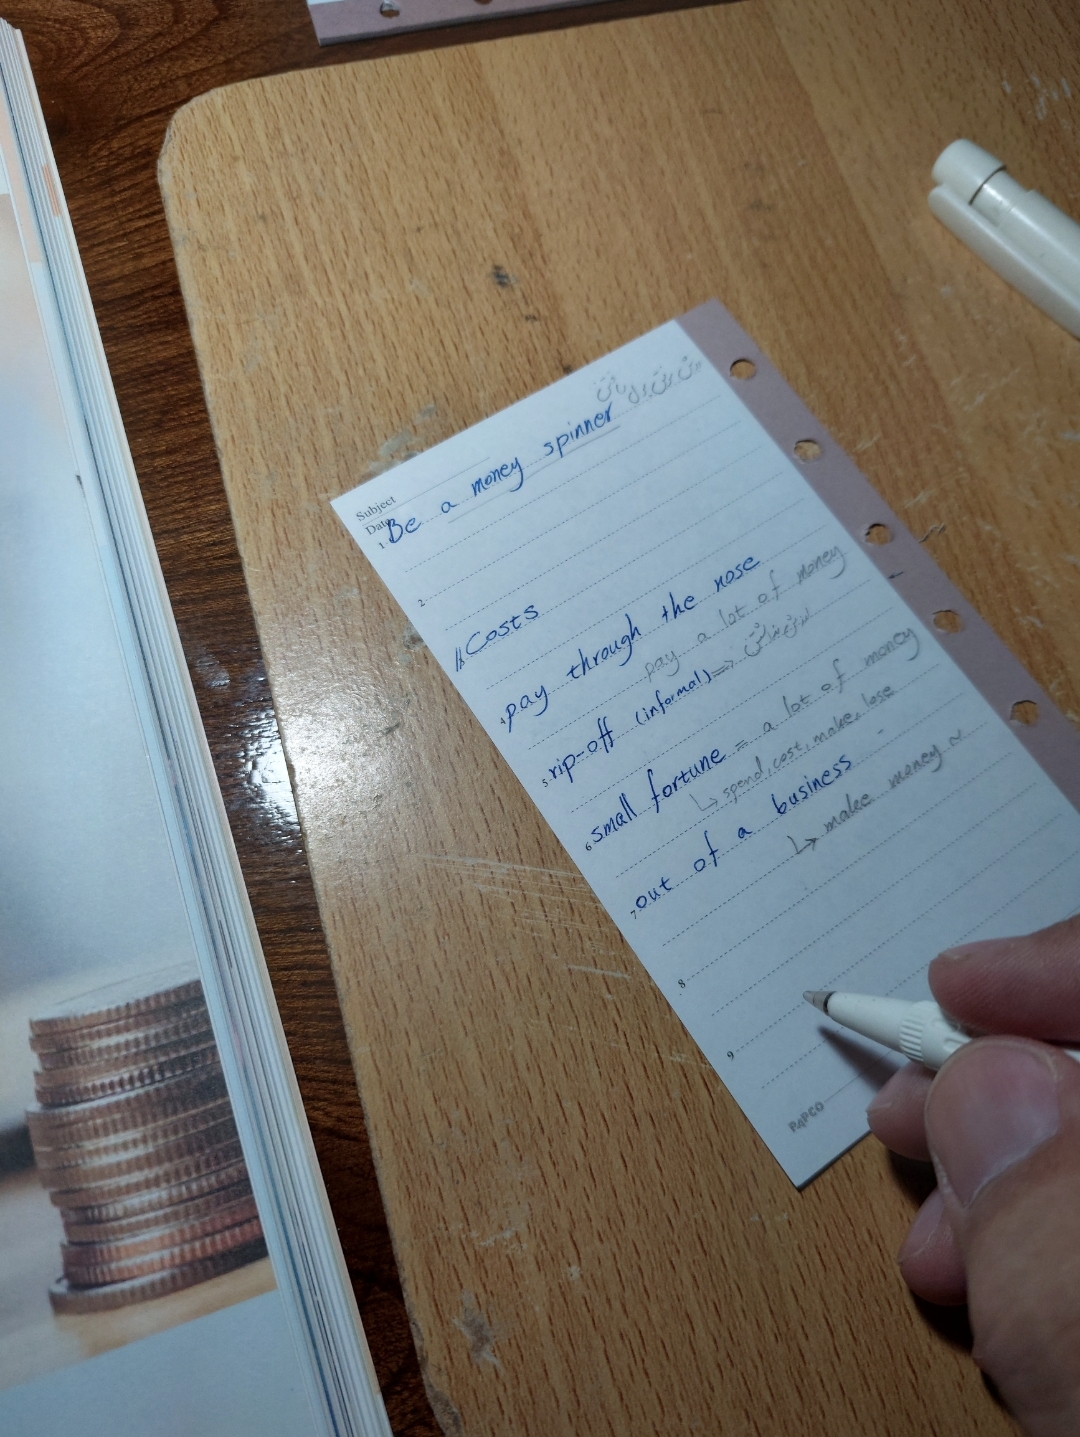 Subject
Date
1 Be a money spinner
2
Costs
4 pay through the nose
pay a lot of money
5 rip-off (informal) =>
6 small fortune = a lot of money
↳ spend, cost, make, lose
7 out of a business
↳ make money ~
8
9
PAPCO